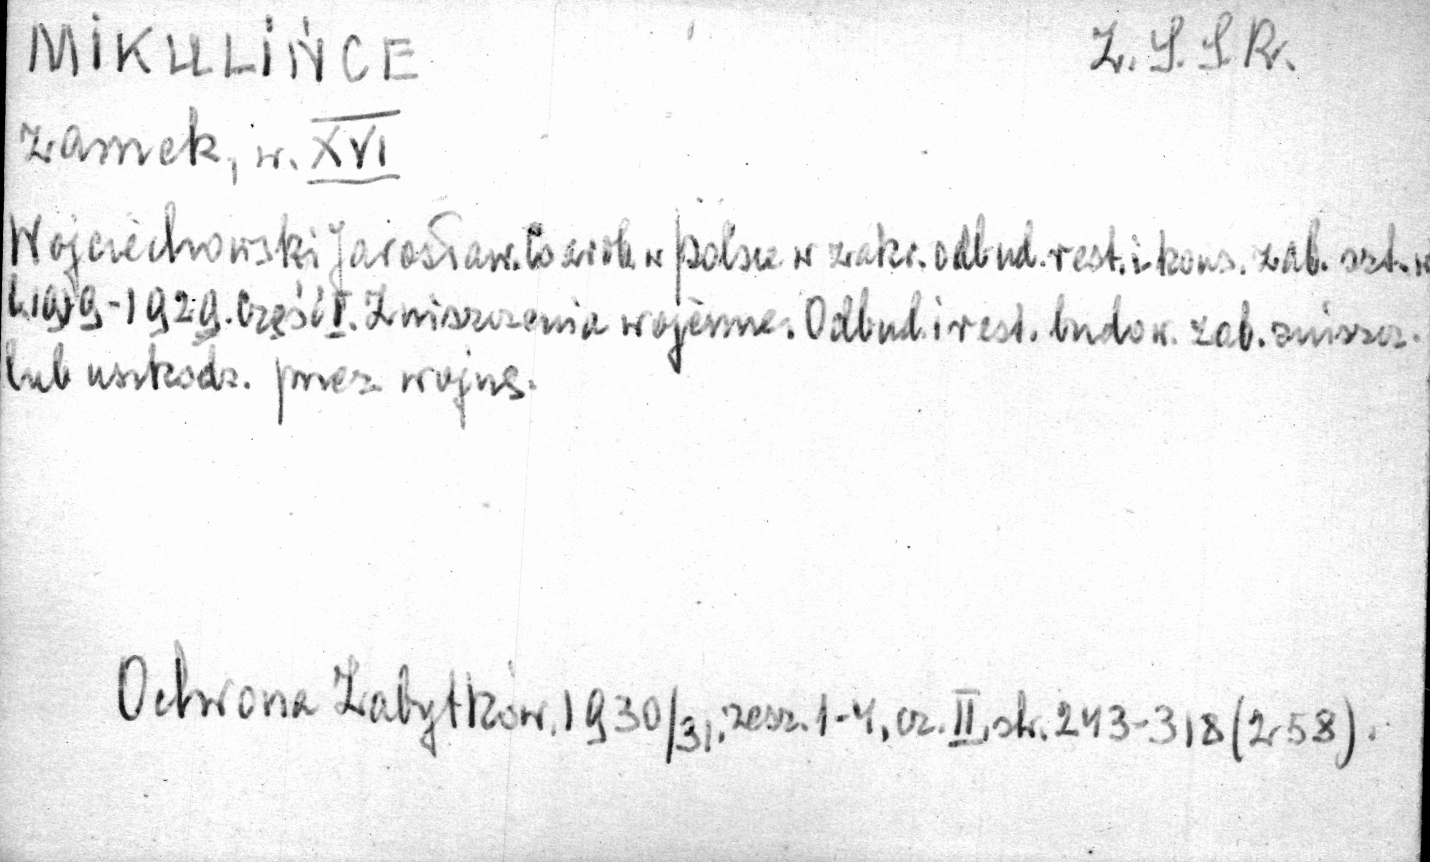 MIKULIŃCE Z.S.S.R.
Zamek, w. XVI
Wojciechowski Jarosław. Co zrob. w Polsce w zakr. odbud. rest. i kons. zab. szt. w
l. 1919-1929. Część I. Zniszczenia wojenne. Odbud. i rest. budow. zab. zniszcz.
lub uszkodz. przez wojnę.
Ochrona Zabytków, 1930/31, zesz. 1-4, cz. II, str. 243-318 (258).